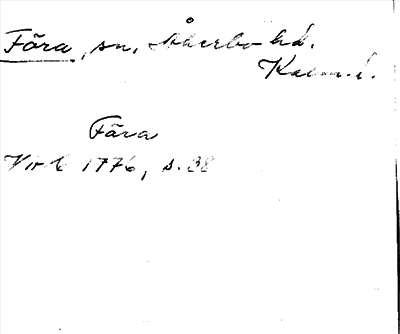 Föra, sn, Åkerbo hd.
Kalm. l.
Föra
1776, s. 38